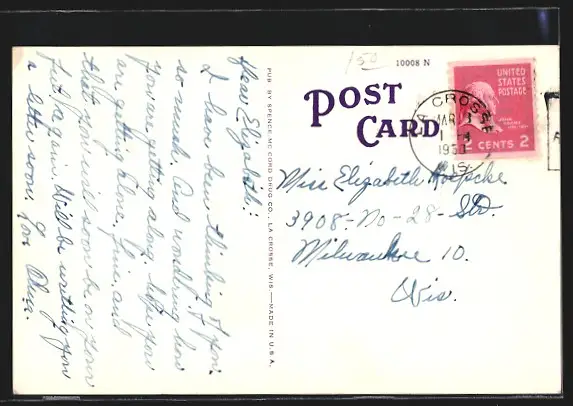 150
10008 N
POST
CARD
UNITED
STATES
POSTAGE
2 CENTS 2
LA CROSSE
MAR
1
WIS.
Miss Elizabeth Koepcke
3908-No-28-Str.
Milwaukee 10.
Wis.
PUB. BY SPENCE-MC CORD DRUG CO., LA CROSSE, WIS. — MADE IN U.S.A.
Dear Elizabeth:
I have been thinking of you
so much. And wondering how
you are getting along. hope you
are getting along fine. and
that you will soon be on your
feet again. Will be writing you
a letter soon. Love